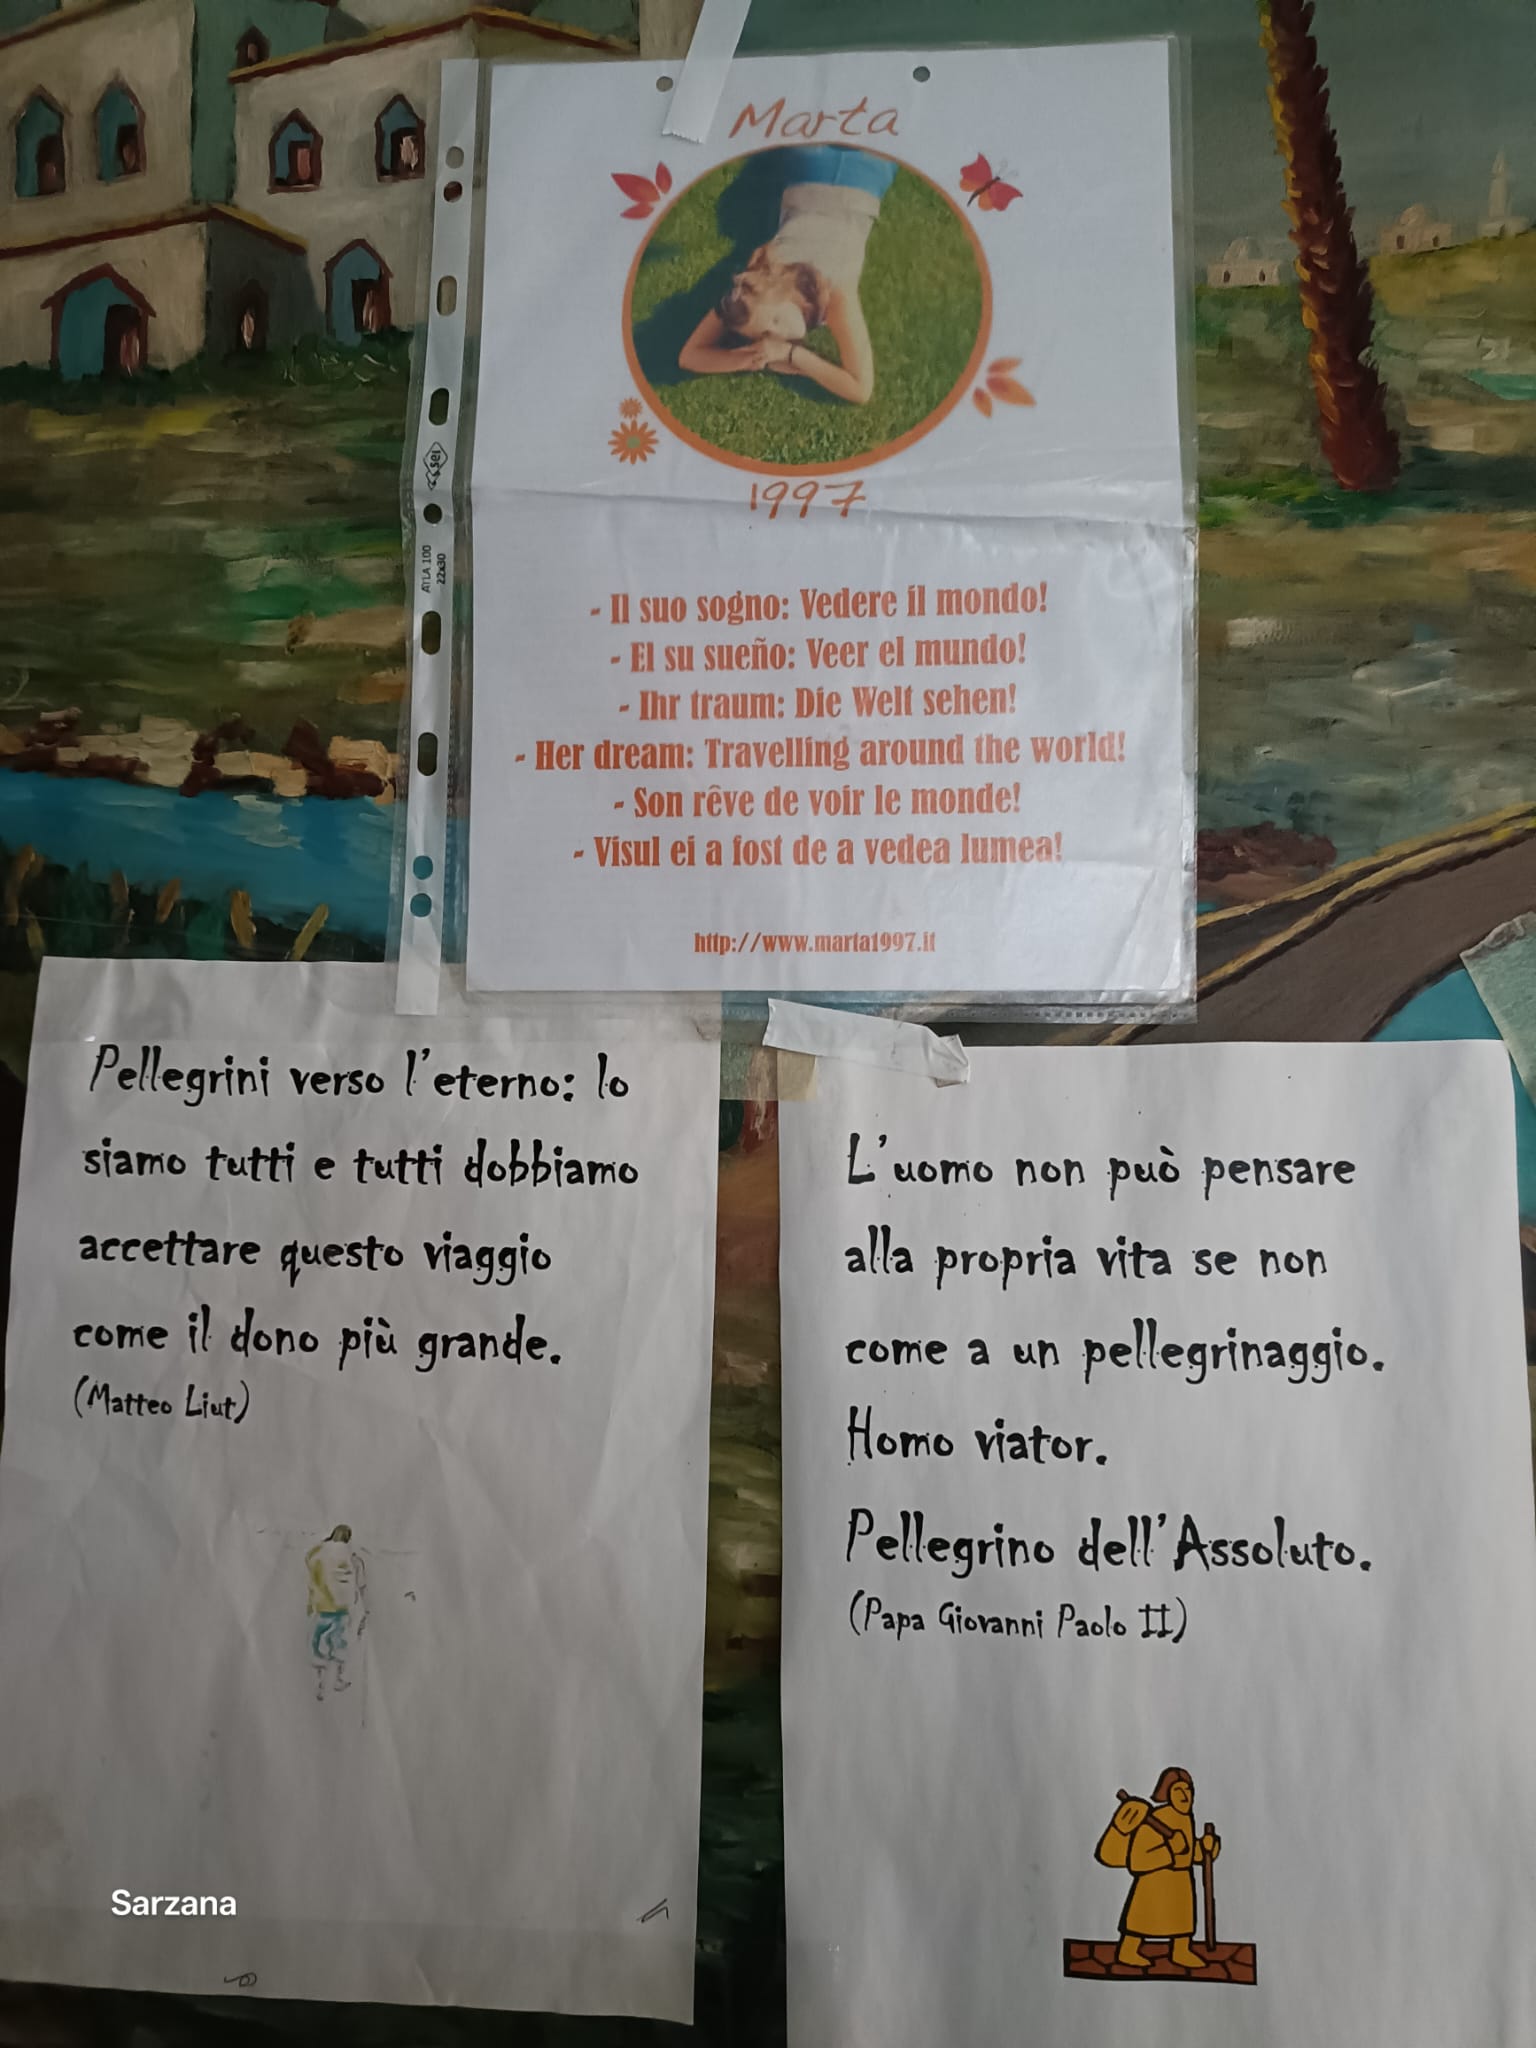 Marta
1997
- Il suo sogno: Vedere il mondo!
- El su sueño: Veer el mundo!
- Ihr traum: Die Welt sehen!
- Her dream: Travelling around the world!
- Son rêve de voir le monde!
- Visul ei a fost de a vedea lumea!
http://www.marta1997.it
sei
ATLA 100
22x30
Pellegrini verso l'eterno: lo
siamo tutti e tutti dobbiamo
accettare questo viaggio
come il dono più grande.
(Matteo Liut)
L'uomo non può pensare
alla propria vita se non
come a un pellegrinaggio.
Homo viator.
Pellegrino dell'Assoluto.
(Papa Giovanni Paolo II)
Sarzana